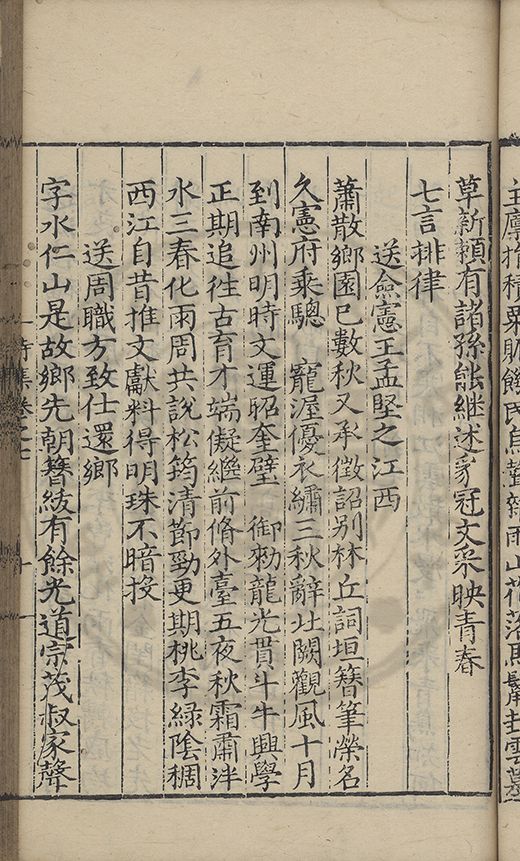 草新賴有諸孫能繼述豸冠文采映青春
七言排律
送僉憲王孟堅之江西
蕭散鄉園已數秋又承徵詔別林丘詞垣簪筆榮名
久憲府乘驄　寵渥優衣繡三秋辭北闕觀風十月
到南州明時文運昭奎璧　御勑龍光貫斗牛興學
正期追往古育才端儗繼前脩外臺五夜秋霜肅泮
水三春化雨周共說松筠清節勁更期桃李綠陰稠
西江自昔推文獻料得明珠不暗投
送周職方致仕還鄉
字水仁山是故鄉先朝簪紱有餘光道宗茂叔家聲